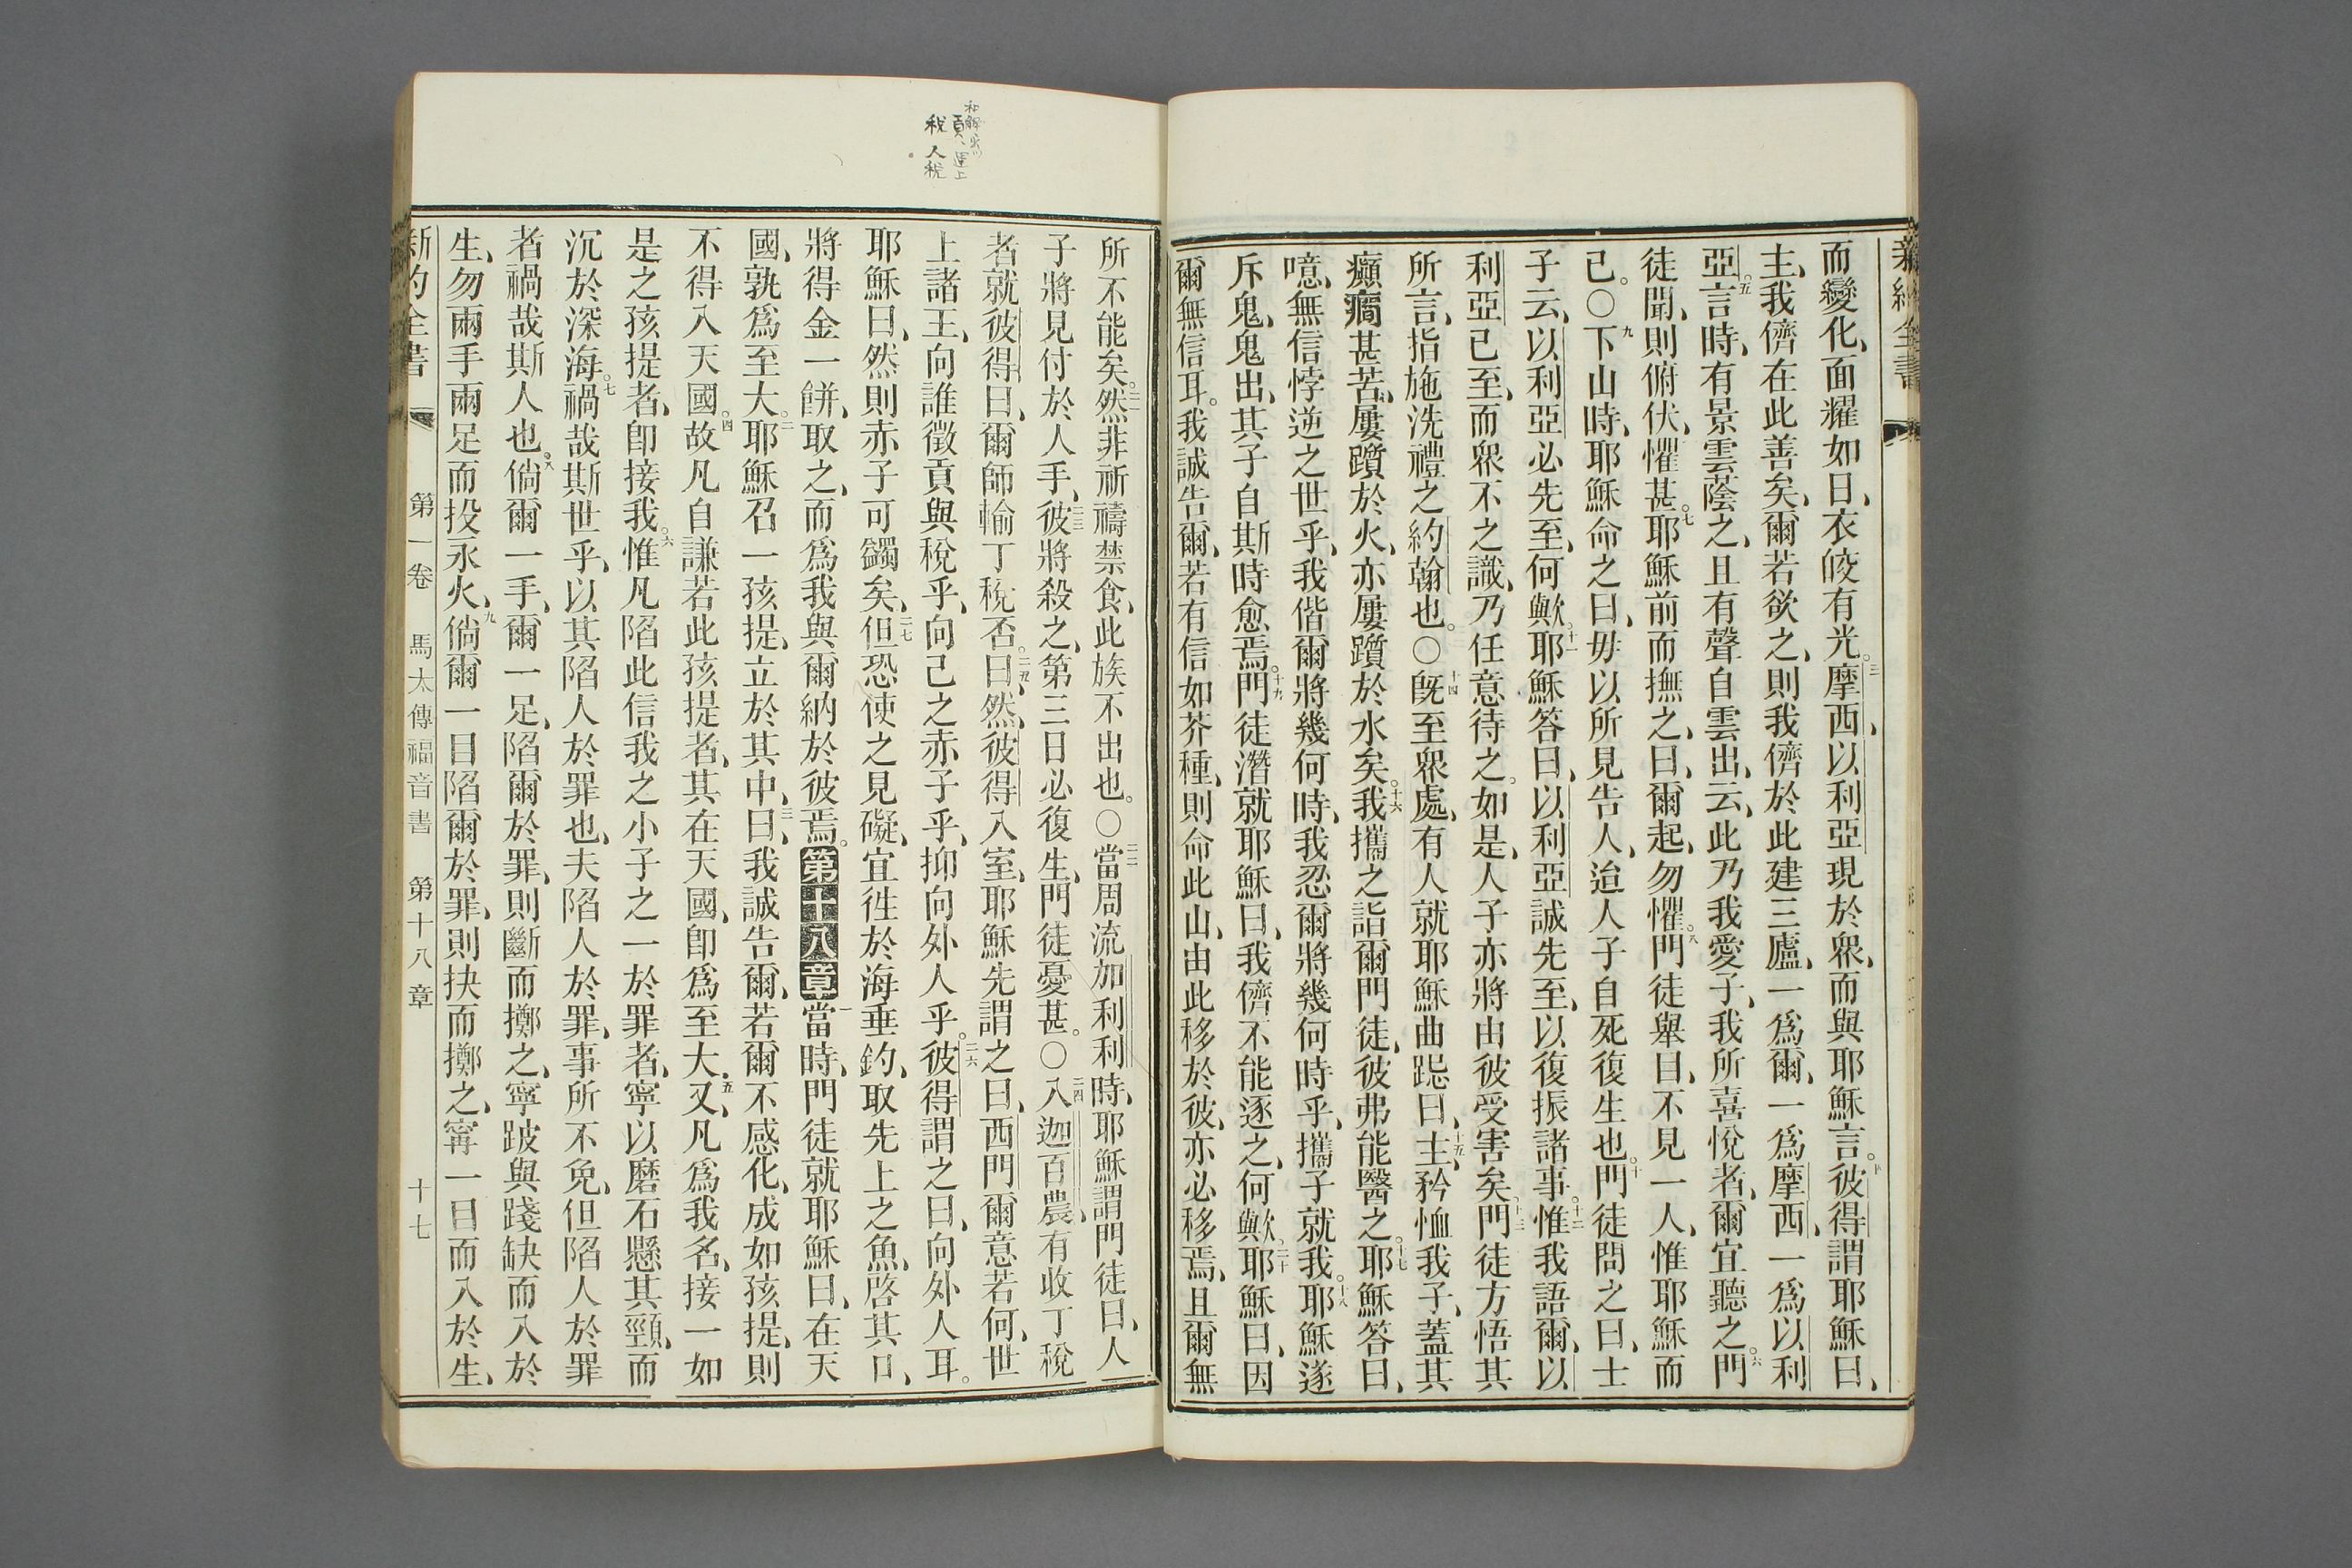 新約全書
而變化、面耀如日、衣皎有光。三摩西、以利亞現於衆、而與耶穌言。四彼得謂耶穌曰、
主、我儕在此善矣、爾若欲之、則我儕於此建三廬、一爲爾、一爲摩西、一爲以利
亞。五言時、有景雲蔭之、且有聲自雲出、云、此乃我愛子、我所喜悅者、爾宜聽之。六門
徒聞、則俯伏、懼甚。七耶穌前而撫之、曰、爾起、勿懼。八門徒舉目、不見一人、惟耶穌而
已。〇九下山時、耶穌命之曰、毋以所見告人、迨人子自死復生也。十門徒問之曰、士
子云、以利亞必先至、何歟。十一耶穌答曰、以利亞誠先至、以復振諸事。十二惟我語爾、以
利亞已至、而衆不之識、乃任意待之。如是、人子亦將由彼受害矣、十三門徒方悟其
所言、指施洗禮之約翰也。〇十四旣至衆處、有人就耶穌曲跽曰、十五主、矜恤我子、蓋其
癲癎甚苦、屢躓於火、亦屢躓於水矣。十六我攜之詣爾門徒、彼弗能醫之。十七耶穌答曰、
噫、無信悖逆之世乎、我偕爾將幾何時、我忍爾將幾何時乎、攜子就我。十八耶穌遂
斥鬼、鬼出、其子自斯時愈焉。十九門徒潛就耶穌曰、我儕不能逐之、何歟。二十耶穌曰、因
爾無信耳。我誠告爾、若有信如芥種、則命此山、由此移於彼、亦必移焉、且爾無
税 人税
所不能矣。二一然非祈禱禁食、此族不出也。〇二二當周流加利利時、耶穌謂門徒曰、人
子將見付於人手、二三彼將殺之、第三日必復生、門徒憂甚。〇二四入迦百農、有收丁稅
者就彼得曰、爾師輸丁稅否。二五曰、然、彼得入室、耶穌先謂之曰、西門爾意若何、世
上諸王、向誰徵貢與稅乎、向己之赤子乎、抑向外人乎。二六彼得謂之曰、向外人耳。
耶穌曰、然則赤子可蠲矣、二七但恐使之見礙、宜徃於海垂釣、取先上之魚、啓其口、
將得金一餅、取之、而爲我與爾納於彼焉。第十八章一當時、門徒就耶穌曰、在天
國、孰爲至大。二耶穌召一孩提、立於其中、三曰、我誠告爾、若爾不感化、成如孩提、則
不得入天國。四故凡自謙若此孩提者、其在天國、卽爲至大、五又、凡爲我名、接一如
是之孩提者、卽接我。六惟凡陷此信我之小子之一於罪者、寧以磨石懸其頸、而
沉於深海。七禍哉斯世乎、以其陷人於罪也、夫陷人於罪、事所不免、但陷人於罪
者、禍哉斯人也。八倘爾一手、爾一足、陷爾於罪、則斷而擲之、寧跛與踐缺而入於
生、勿兩手兩足而投永火、九倘爾一目陷爾於罪、則抉而擲之、寗一目而入於生、
新約全書 第一卷 馬太傳福音書 第十八章 十七